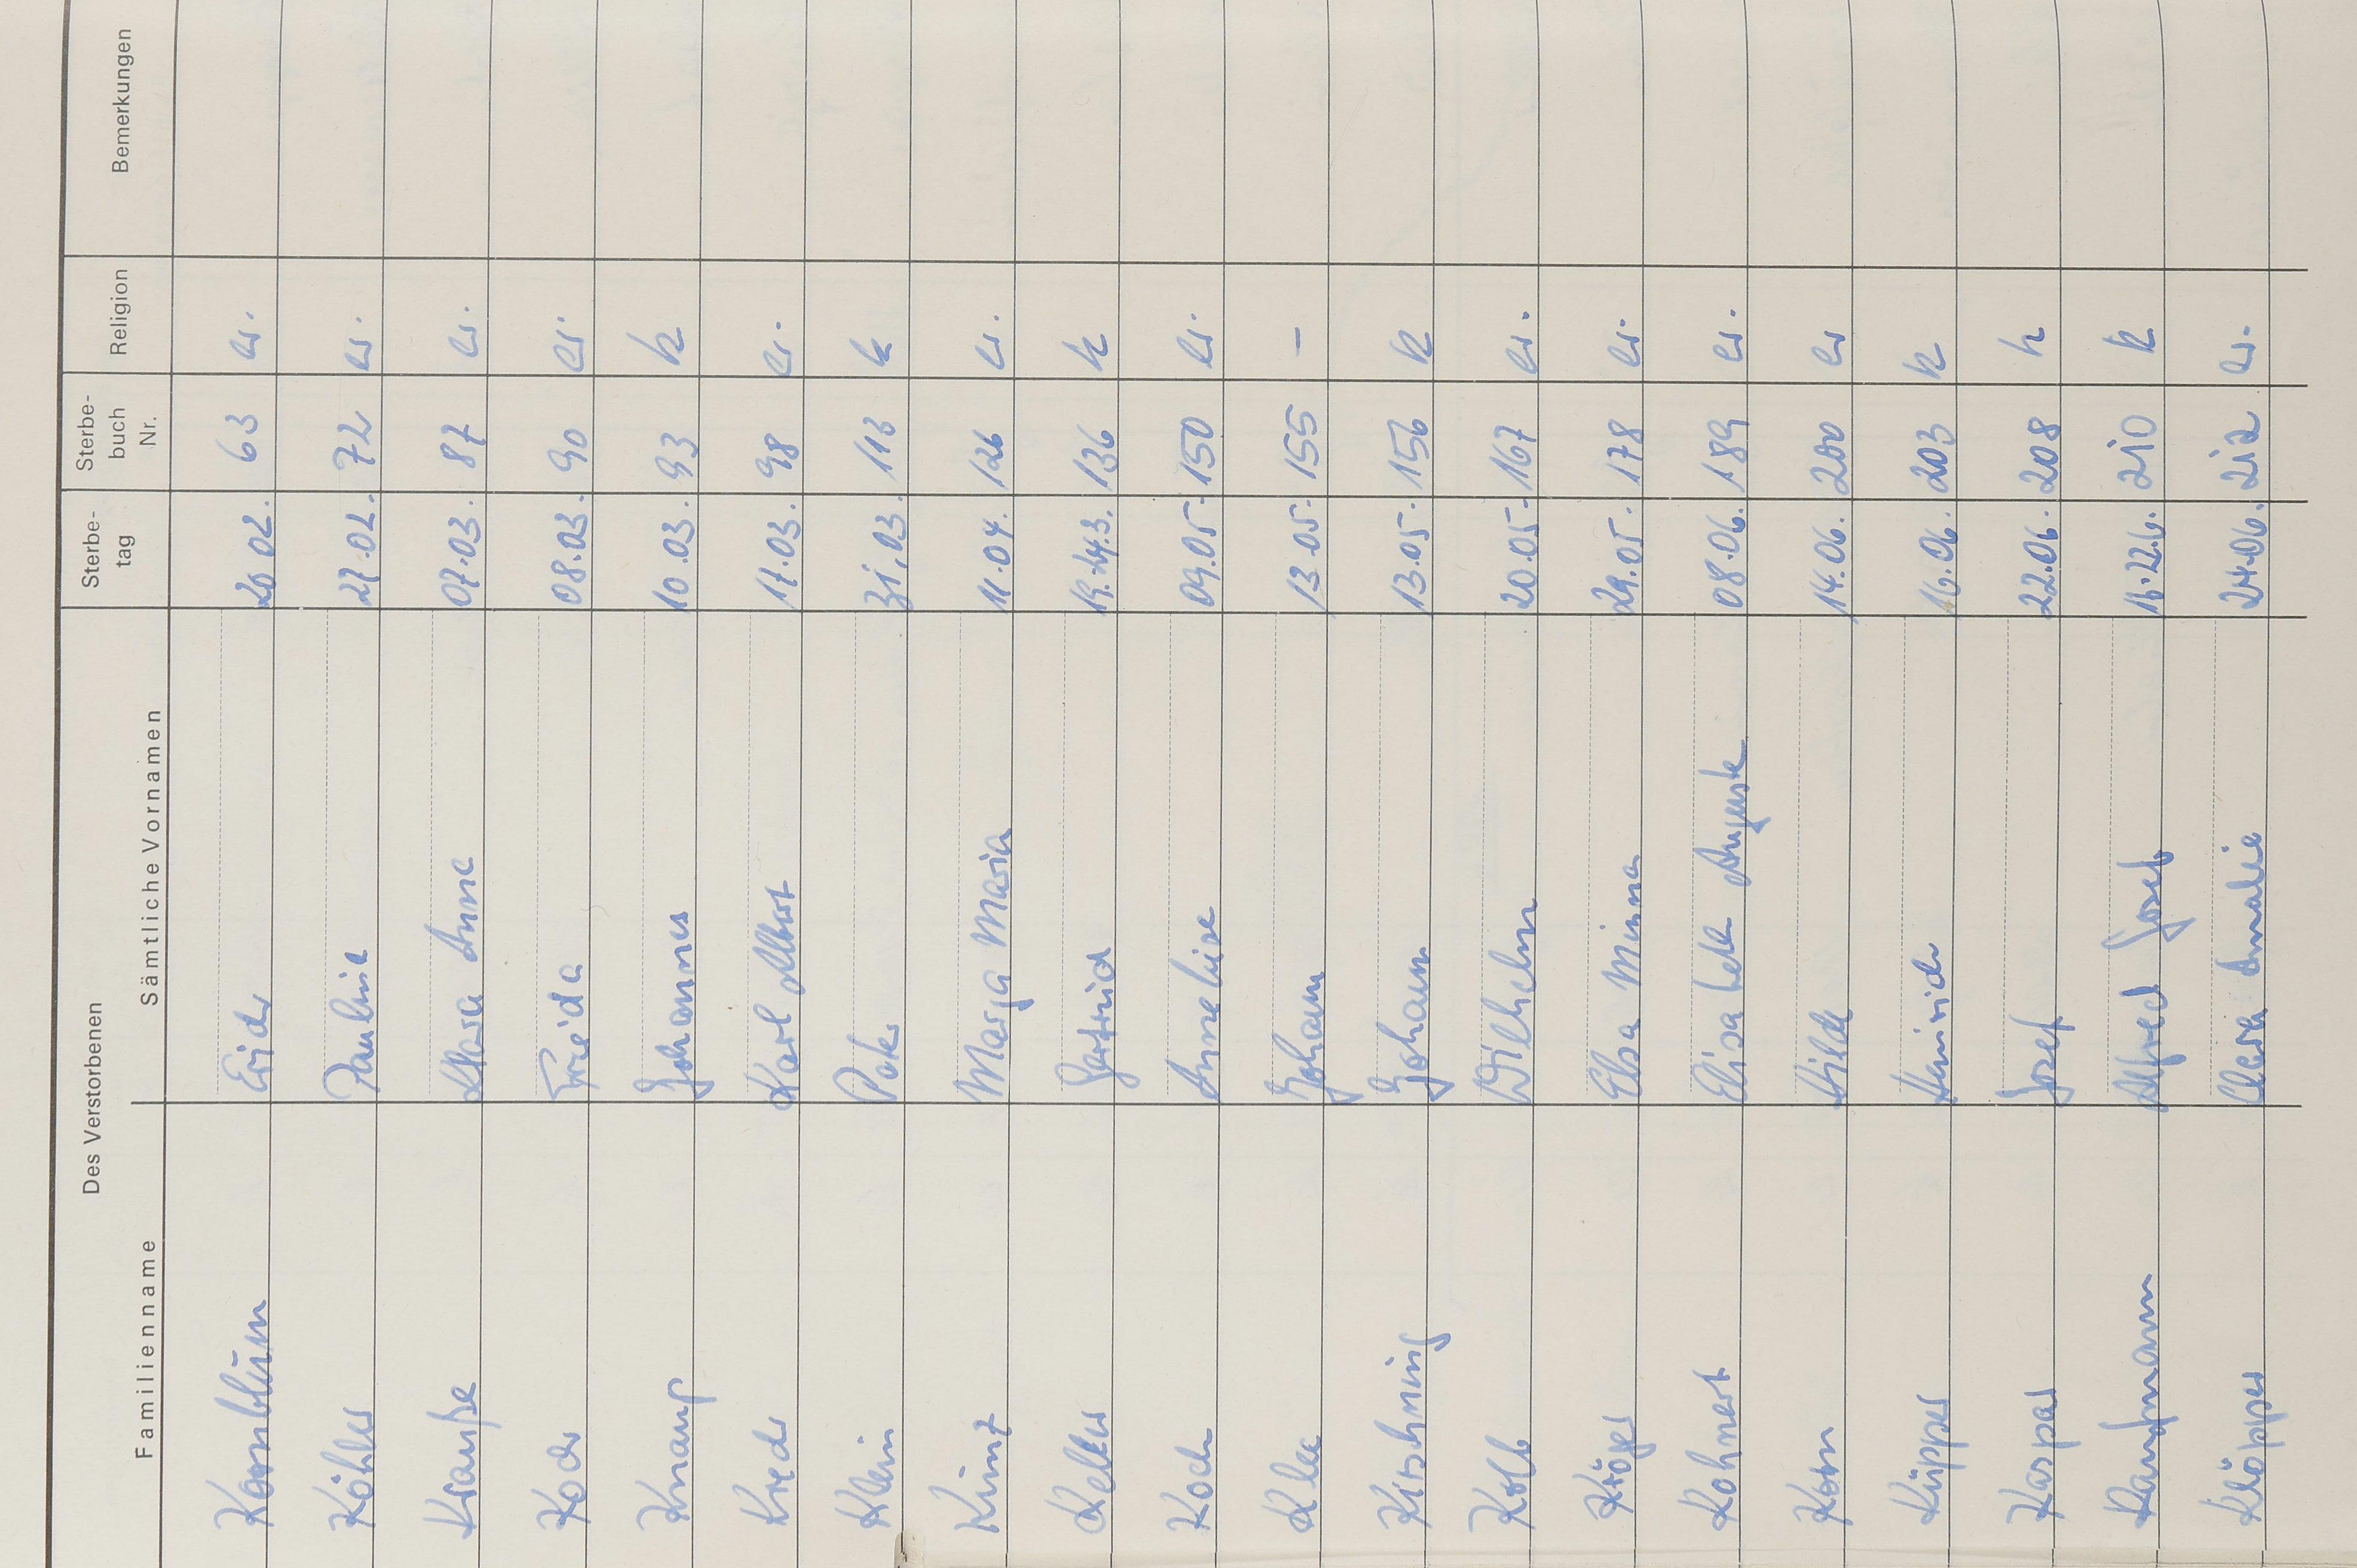 Des Verstorbenen
Familienname Sämtliche Vornamen Sterbe-tag Sterbe-buch Nr. Religion Bemerkungen
Kornblum Erich 20 02. 63 ev.
Köhler Pauline 27.02. 72 ev.
Krauße Klara Anna 07.03. 87 ev.
Koch Frieda 08.03. 90 ev.
Knaup Johannes 10.03. 93 k
Karl Albert 17.03. 98 ev.
Klein Peter 31.03. 113 k
Kunz Marga Maria 11.04. 126 ev.
Keller Gertrud 136 k
Koch Anneliese 09.05. 150 ev.
Klee Johann 13.05. 155 –
Kirschning Johann 13.05. 156 k
Kolb Wilhelm 20.05. 167 ev.
Kröger Elsa Minna 29.05. 178 ev.
Kohnert Elisabeth Auguste 08.06. 189 ev.
Korn Hilde 14.06. 200 ev
Küpper Heinrich 16.06. 203 k
Kaspar Josef 22.06. 208 k
Kaufmann Alfred Josef 16.-22.6. 210 k
Klöpper Clara Amalie 24.06. 212 ev.